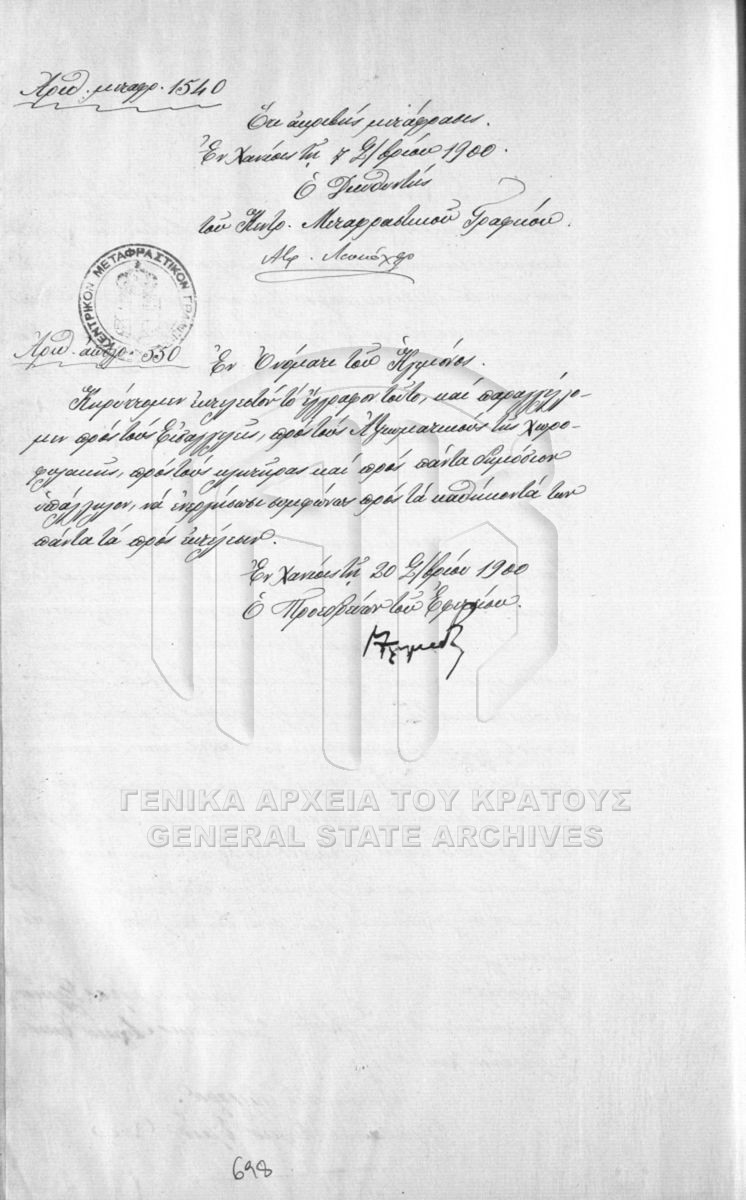 Ἀριθ. μεταφρ. 1540
Ὅτι ἀκριβὴς μετάφρασις.
Ἐν Χανίοις τῇ 7 9/βρίου 1900.
Ὁ Διευθυντὴς
τοῦ Κεντρ. Μεταφραστικοῦ Γραφείου.
ΚΕΝΤΡΙΚΟΝ ΜΕΤΑΦΡΑΣΤΙΚΟΝ
Ἀριθ. 550
Ἐν Ὀνόματι τοῦ Ἡγεμόνος.
Κηρύττομεν ἐκτελεστὸν τὸ ἔγγραφον τοῦτο, καὶ παραγγέλλο-
μεν πρὸς τοὺς Εἰσαγγελεῖς, πρὸς τοὺς Ἀξιωματικοὺς τῆς Χωρο-
φυλακῆς, πρὸς τοὺς κλητῆρας καὶ πρὸς πάντα δημόσιον
ὑπάλληλον, νὰ ἐνεργήσωσι συμφώνως πρὸς τὰ καθήκοντά των
πάντα τὰ πρὸς ἐκτέλεσιν.
Ἐν Χανίοις τῇ 20 9/βρίου 1900
Ὁ Προεδρεύων τοῦ Ἐφετείου.
ΓΕΝΙΚΑ ΑΡΧΕΙΑ ΤΟΥ ΚΡΑΤΟΥΣ
GENERAL STATE ARCHIVES
698